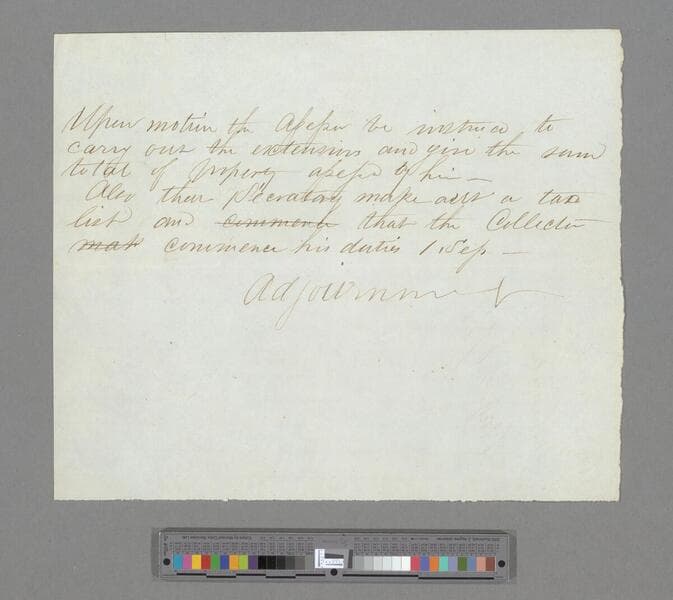 Upon motion the Assessor be instruced to
carry out the extensions and give the sum
total of property assessd by him —
Also their Secratary make out a tax
list and commence that the Collector
mak commence his duties 1 Sep —
Adjournment